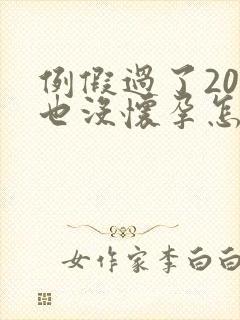 例假過了20
也沒懷孕怎
女作家李白白